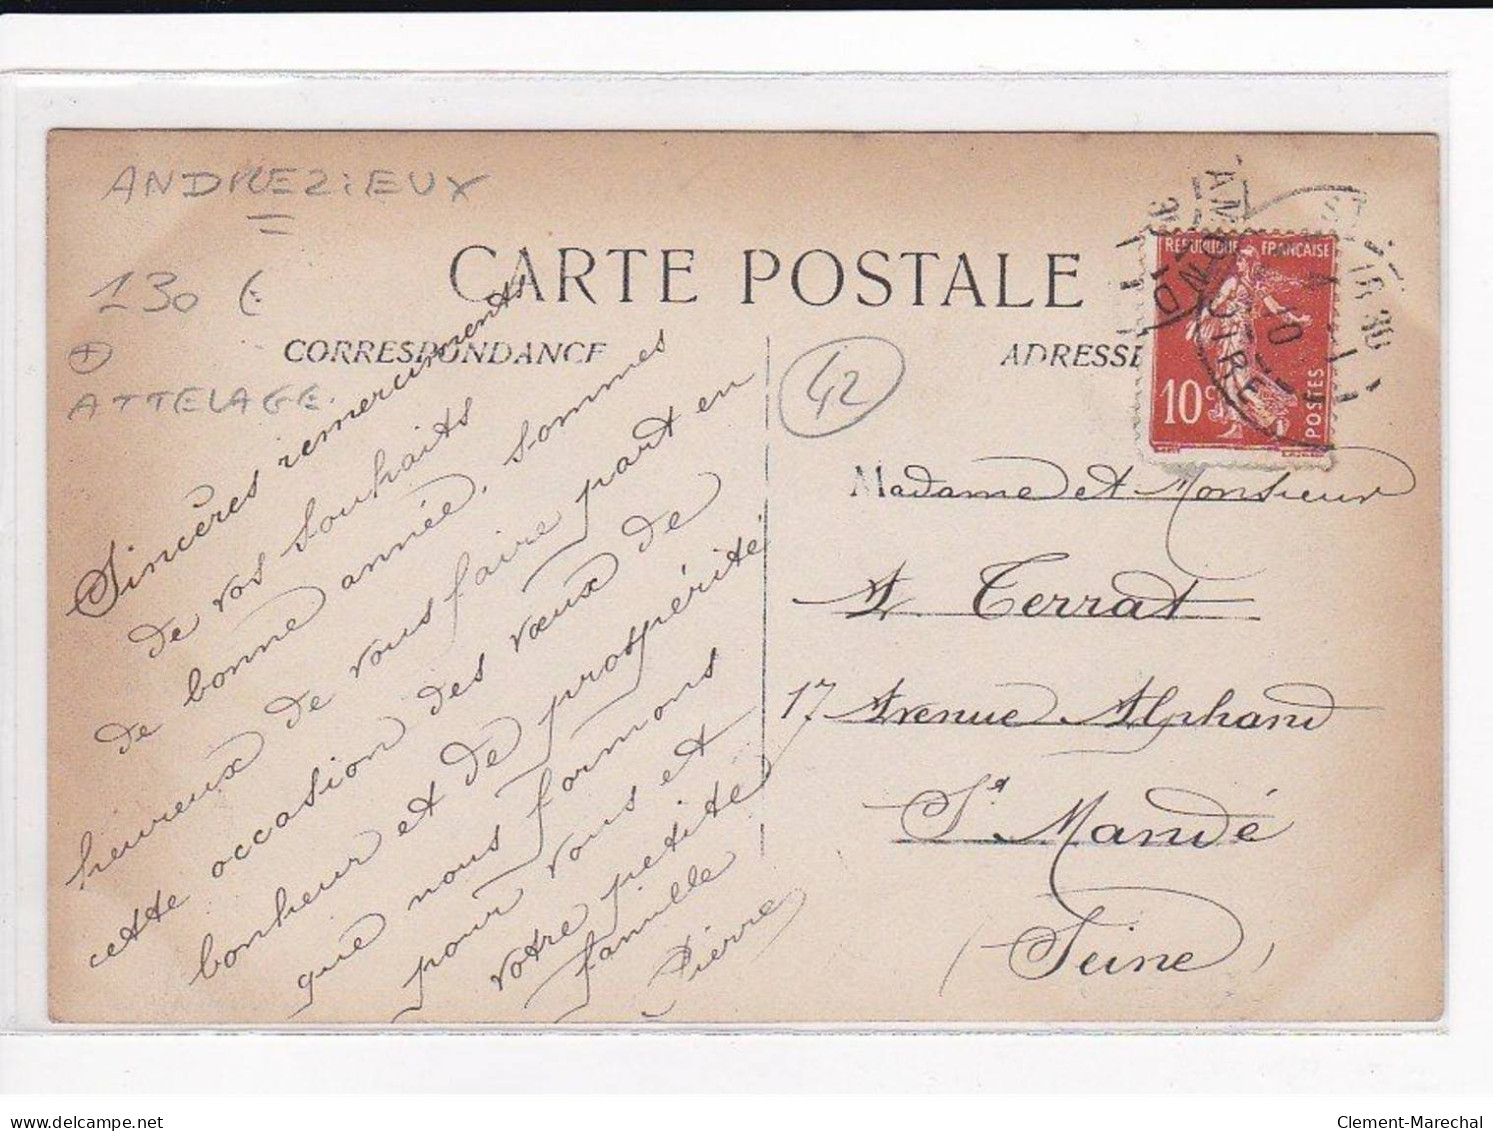 ANDREZIEUX
130 €
+
ATTELAGE.
CARTE POSTALE
CORRESPONDANCE
ADRESSE
42
RÉPUBLIQUE FRANÇAISE
10 c
POSTES
LOIRE
18 30
Sincères remerciments
de vos souhaits
de bonne année, sommes
heureux de vous faire part en
cette occasion des vœux de
bonheur et de prospérité
que nous formons
pour vous et
votre petite
famille
Pierre
Madame et Monsieur
A. Terrat
17 Avenue Alphand
St Mandé
(Seine)
delcampe.net
Clement-Marechal